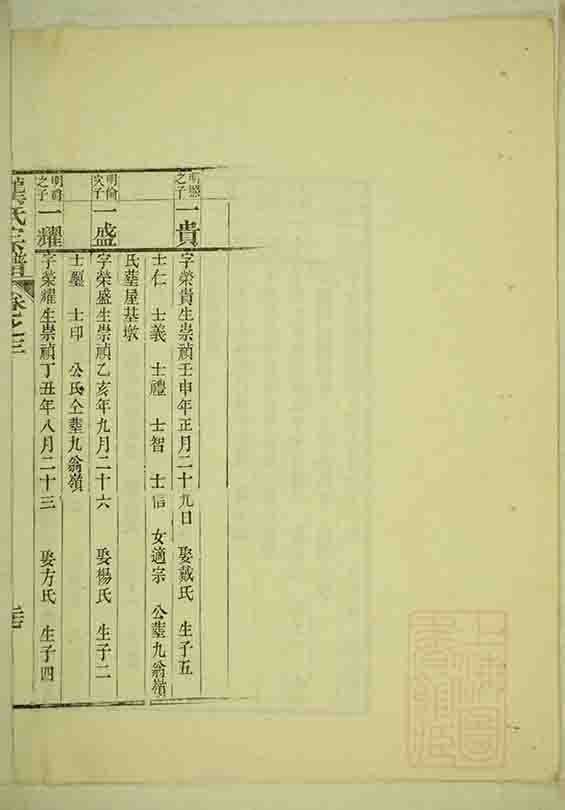 明恩之子 一貴 字榮貴生崇禎壬申年正月二十九日 娶戴氏 生子五
士仁 士義 士禮 士智 士信 女適宗 公塟九翁嶺
氏塟屋基墩
明倫次子 一盛 字榮盛生崇禎乙亥年九月二十六 娶楊氏 生子二
士璽 士印 公氏仝塟九翁嶺
之子 一耀 字榮耀生崇禎丁丑年八月二十三 娶方氏 生子四
氏宗譜 卷之三
上海圖書館藏